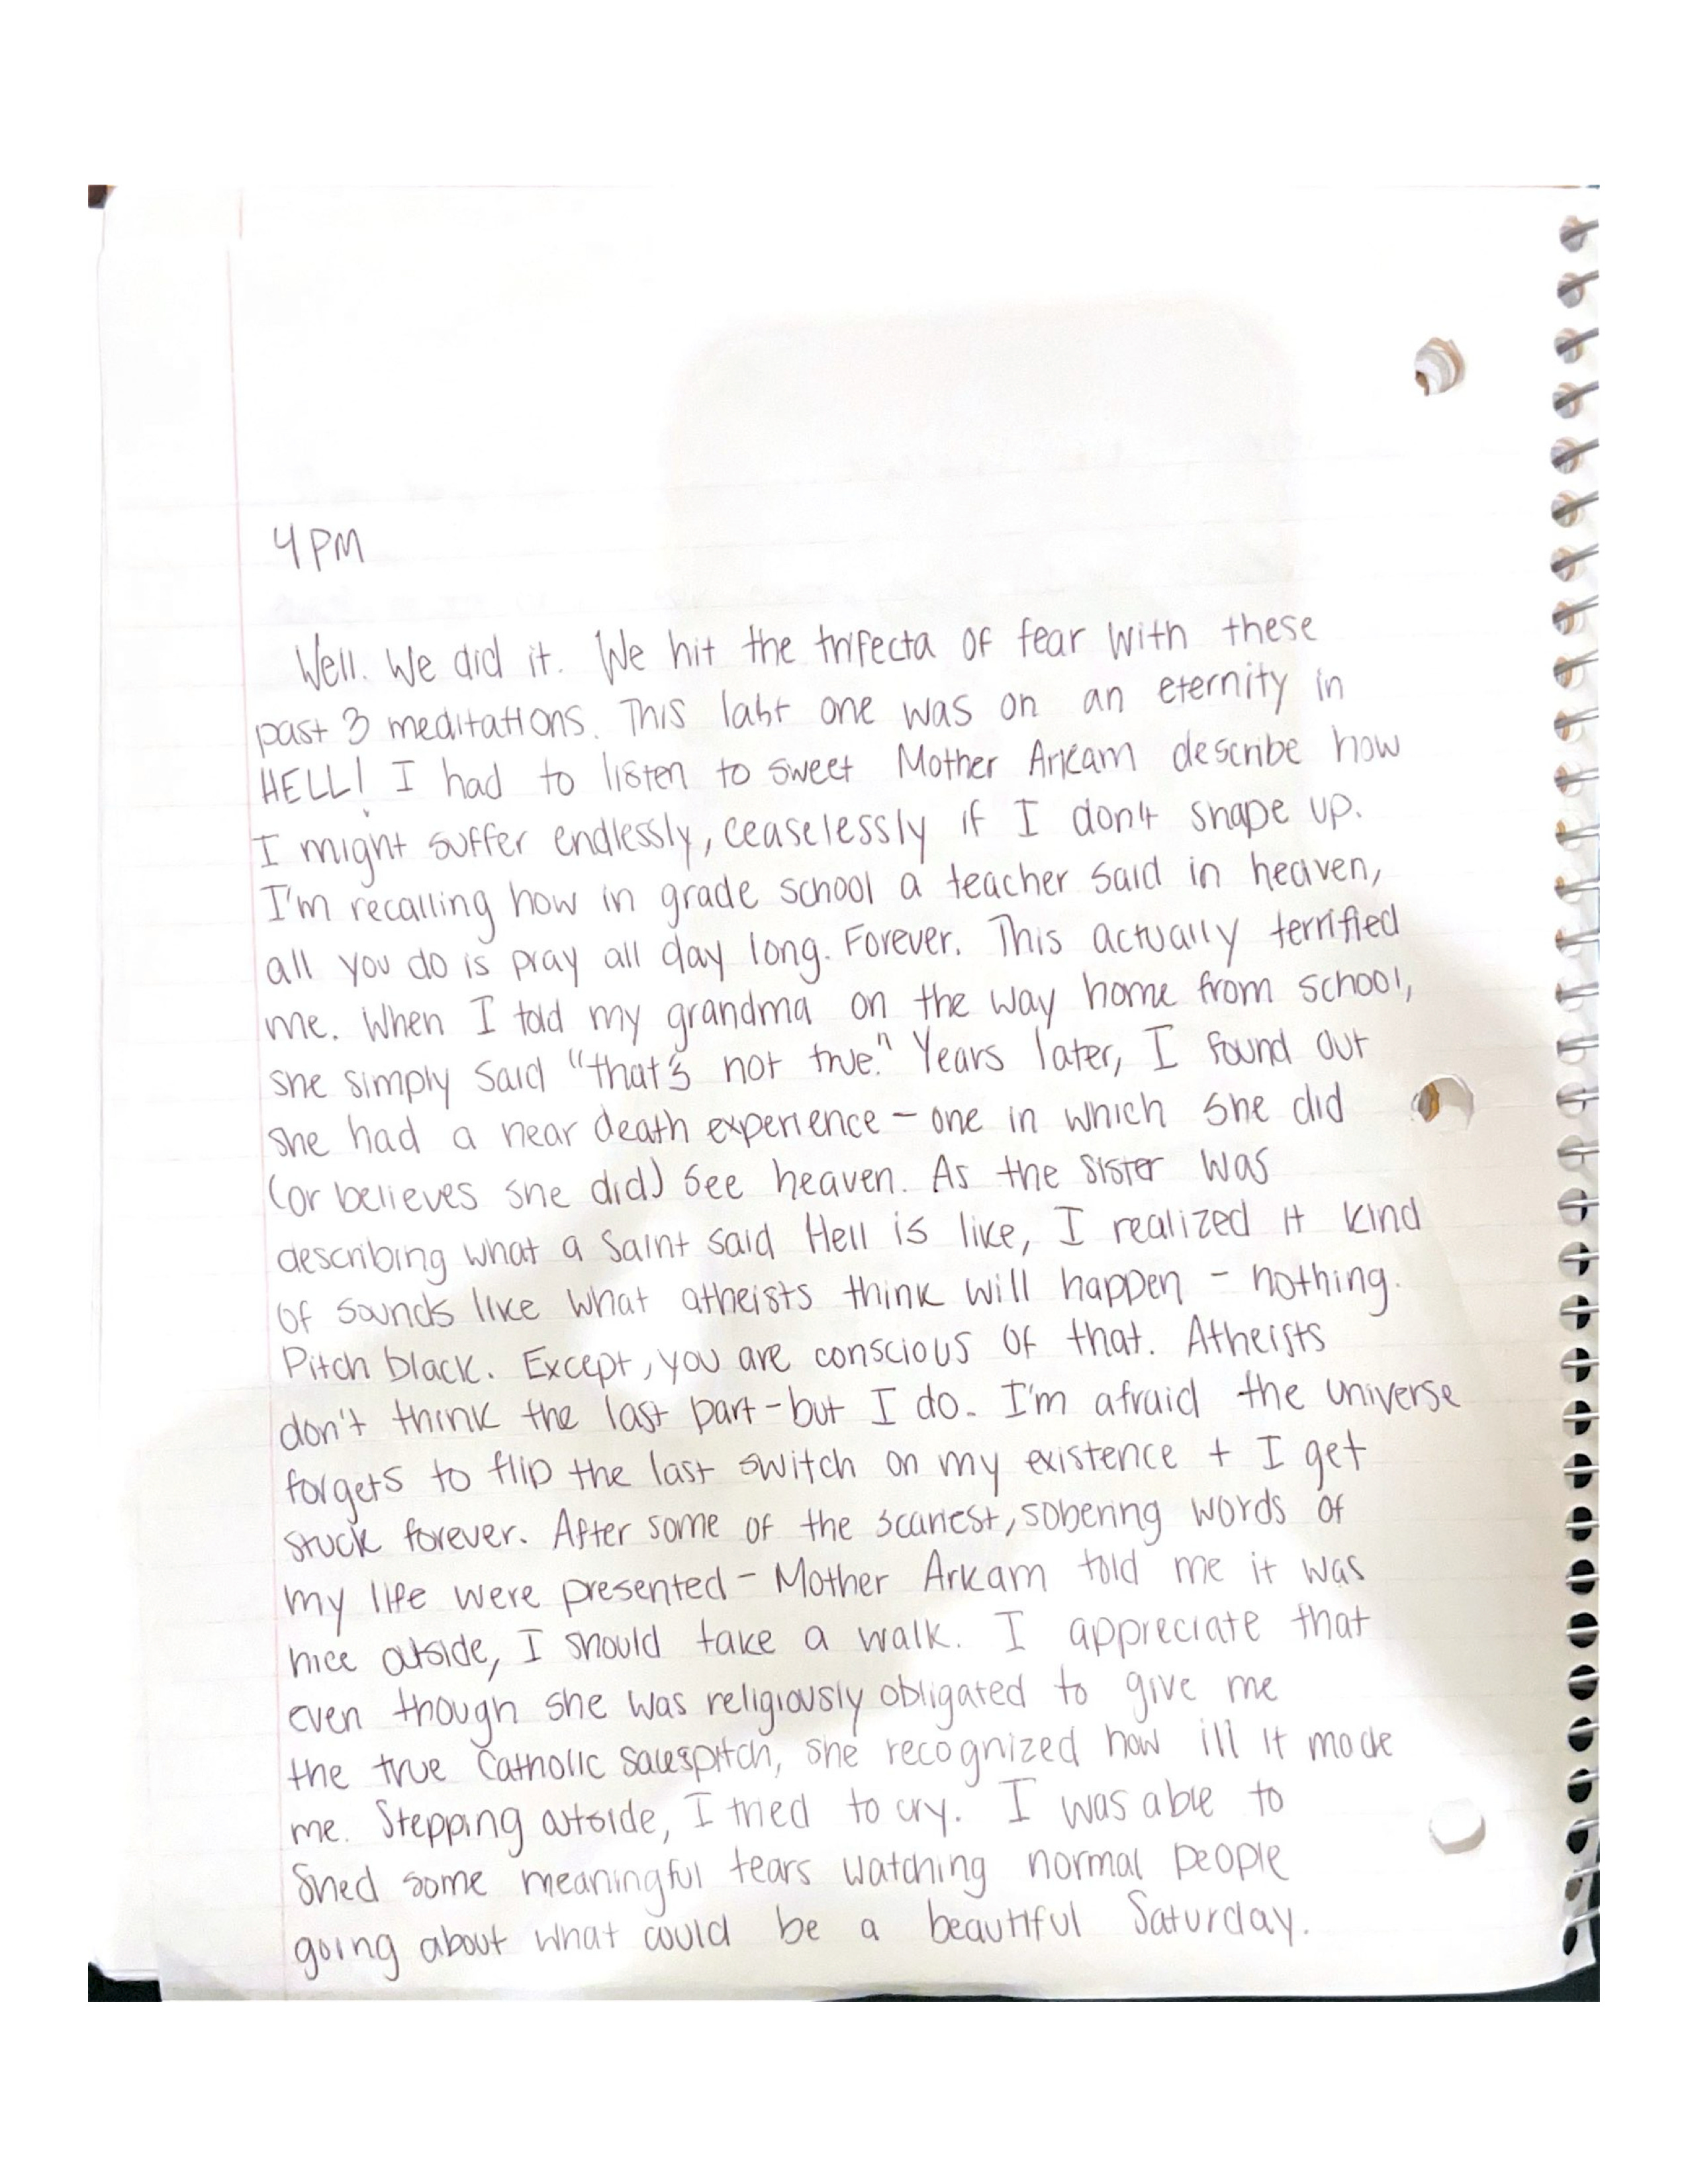 4PM
Well. We did it. We hit the trifecta of fear with these
past 3 meditations. This last one was on an eternity in
HELL! I had to listen to sweet Mother Arkam describe how
I might suffer endlessly, ceaselessly if I don't shape up.
I'm recalling how in grade school a teacher said in heaven,
all you do is pray all day long. Forever. This actually terrified
me. When I told my grandma on the way home from school,
she simply said "that's not true." Years later, I found out
she had a near death experience - one in which she did
(or believes she did) see heaven. As the sister was
describing what a Saint said Hell is like, I realized it kind
of sounds like what atheists think will happen - nothing.
Pitch black. Except, you are conscious of that. Atheists
don't think the last part - but I do. I'm afraid the universe
forgets to flip the last switch on my existence + I get
stuck forever. After some of the scariest, sobering words of
my life were presented - Mother Arkam told me it was
nice outside, I should take a walk. I appreciate that
even though she was religiously obligated to give me
the true Catholic salespitch, she recognized how ill it made
me. Stepping outside, I tried to cry. I was able to
shed some meaningful tears watching normal people
going about what could be a beautiful Saturday.